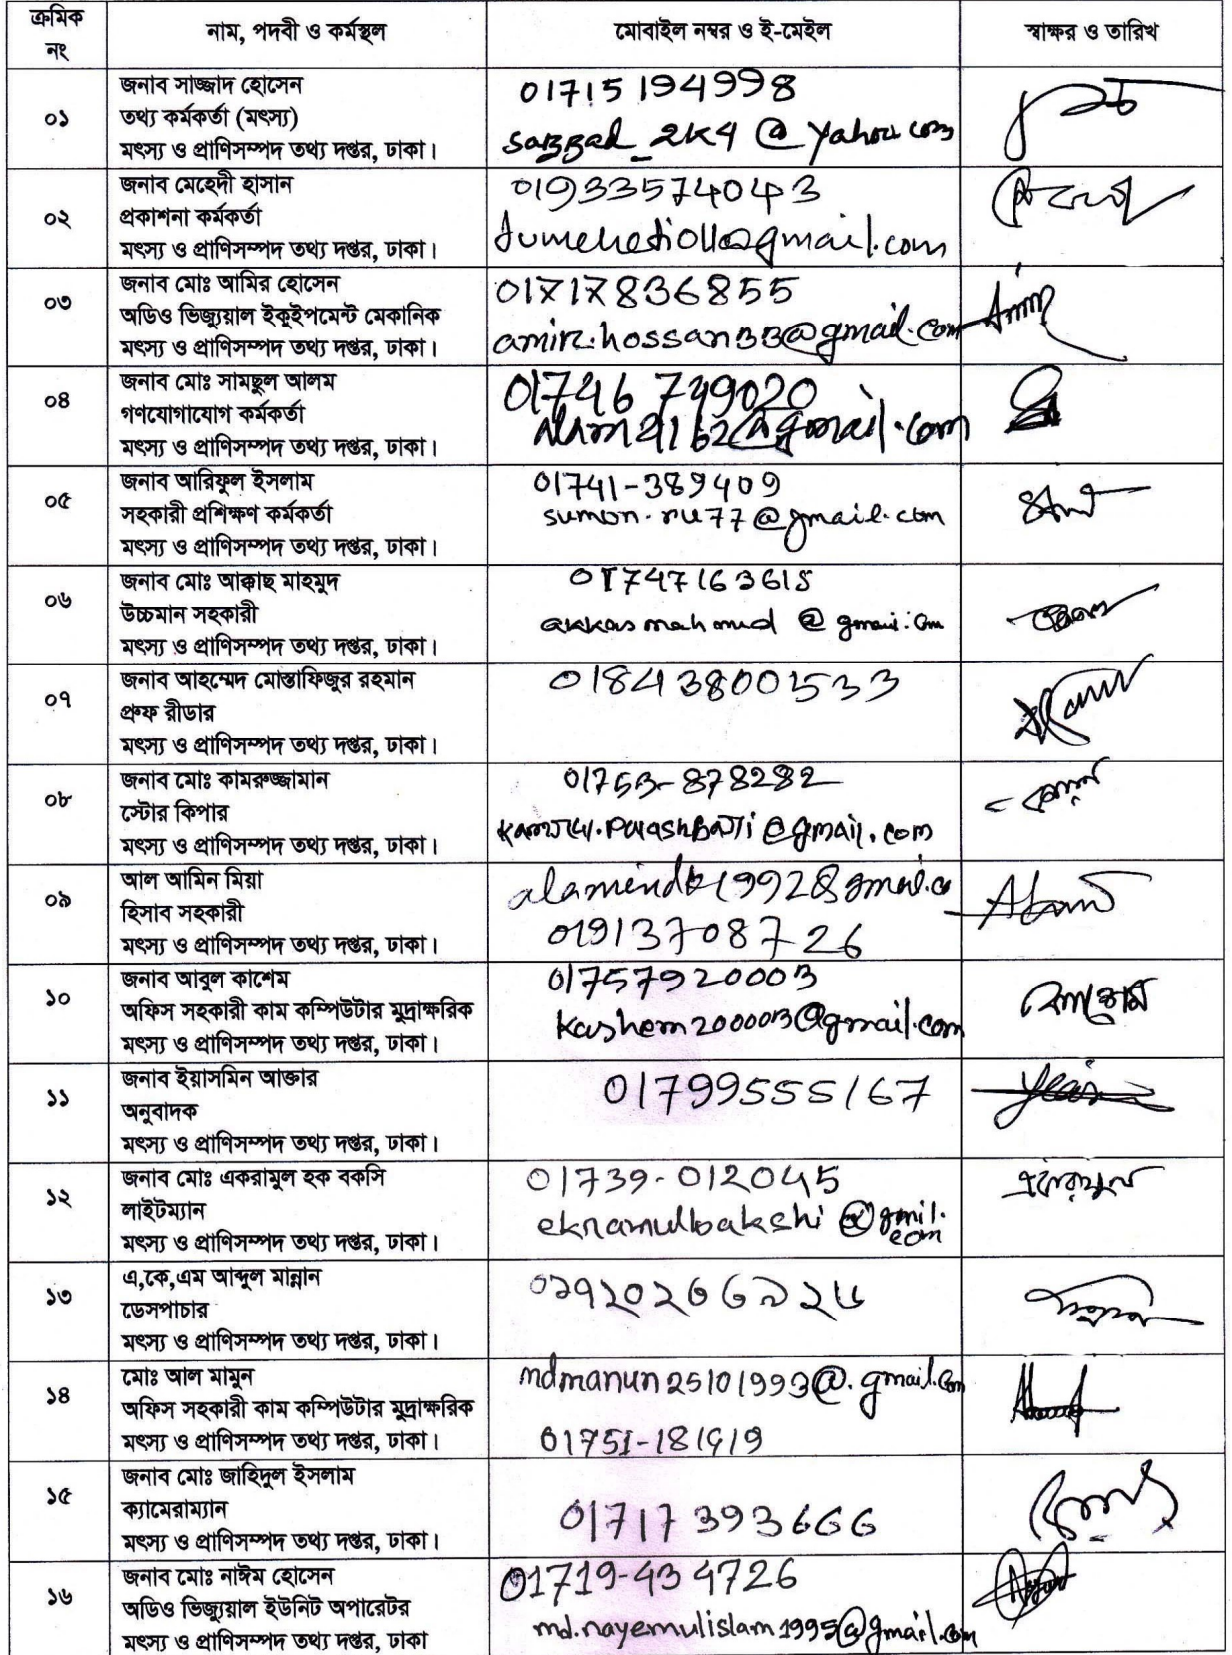 ক্রমিক
নং
নাম, পদবী ও কর্মস্থল
মোবাইল নম্বর ও ই-মেইল
স্বাক্ষর ও তারিখ
০১
জনাব সাজ্জাদ হোসেন
তথ্য কর্মকর্তা (মৎস্য)
মৎস্য ও প্রাণিসম্পদ তথ্য দপ্তর, ঢাকা।
01715194998
sazzad_2k4@yahoo.com
০২
জনাব মেহেদী হাসান
প্রকাশনা কর্মকর্তা
মৎস্য ও প্রাণিসম্পদ তথ্য দপ্তর, ঢাকা।
01933574043
০৩
জনাব মোঃ আমির হোসেন
অডিও ভিজ্যুয়াল ইকূইপমেন্ট মেকানিক
মৎস্য ও প্রাণিসম্পদ তথ্য দপ্তর, ঢাকা।
01717836855
amir.hossan33@gmail.com
Amir
০৪
জনাব মোঃ সামছুল আলম
গণযোগাযোগ কর্মকর্তা
মৎস্য ও প্রাণিসম্পদ তথ্য দপ্তর, ঢাকা।
01746 749020
০৫
জনাব আরিফুল ইসলাম
সহকারী প্রশিক্ষণ কর্মকর্তা
মৎস্য ও প্রাণিসম্পদ তথ্য দপ্তর, ঢাকা।
01741-389409
sumon.ru77@gmail.com
০৬
জনাব মোঃ আক্কাছ মাহমুদ
উচ্চমান সহকারী
মৎস্য ও প্রাণিসম্পদ তথ্য দপ্তর, ঢাকা।
01747163615
akkasmahmud@gmail.com
০৭
জনাব আহম্মেদ মোস্তাফিজুর রহমান
প্রুফ রীডার
মৎস্য ও প্রাণিসম্পদ তথ্য দপ্তর, ঢাকা।
018438001533
০৮
জনাব মোঃ কামরুজ্জামান
স্টোর কিপার
মৎস্য ও প্রাণিসম্পদ তথ্য দপ্তর, ঢাকা।
01753-878282
০৯
আল আমিন মিয়া
হিসাব সহকারী
মৎস্য ও প্রাণিসম্পদ তথ্য দপ্তর, ঢাকা।
01913708726
১০
জনাব আবুল কাশেম
অফিস সহকারী কাম কম্পিউটার মুদ্রাক্ষরিক
মৎস্য ও প্রাণিসম্পদ তথ্য দপ্তর, ঢাকা।
01757920003
kashem200003@gmail.com
১১
জনাব ইয়াসমিন আক্তার
অনুবাদক
মৎস্য ও প্রাণিসম্পদ তথ্য দপ্তর, ঢাকা।
01799555167
১২
জনাব মোঃ একরামুল হক বকসি
লাইটম্যান
মৎস্য ও প্রাণিসম্পদ তথ্য দপ্তর, ঢাকা।
01739-012045
ekramulbakshi@gmil.
com
একরামুল
১৩
এ,কে,এম আব্দুল মান্নান
ডেসপাচার
মৎস্য ও প্রাণিসম্পদ তথ্য দপ্তর, ঢাকা।
১৪
মোঃ আল মামুন
অফিস সহকারী কাম কম্পিউটার মুদ্রাক্ষরিক
মৎস্য ও প্রাণিসম্পদ তথ্য দপ্তর, ঢাকা।
mdmanun25101993@.gmail.com
01751-181919
১৫
জনাব মোঃ জাহিদুল ইসলাম
ক্যামেরাম্যান
মৎস্য ও প্রাণিসম্পদ তথ্য দপ্তর, ঢাকা।
01717393666
১৬
জনাব মোঃ নাঈম হোসেন
অডিও ভিজ্যুয়াল ইউনিট অপারেটর
মৎস্য ও প্রাণিসম্পদ তথ্য দপ্তর, ঢাকা
01719-434726
md.nayemulislam1995@gmail.com